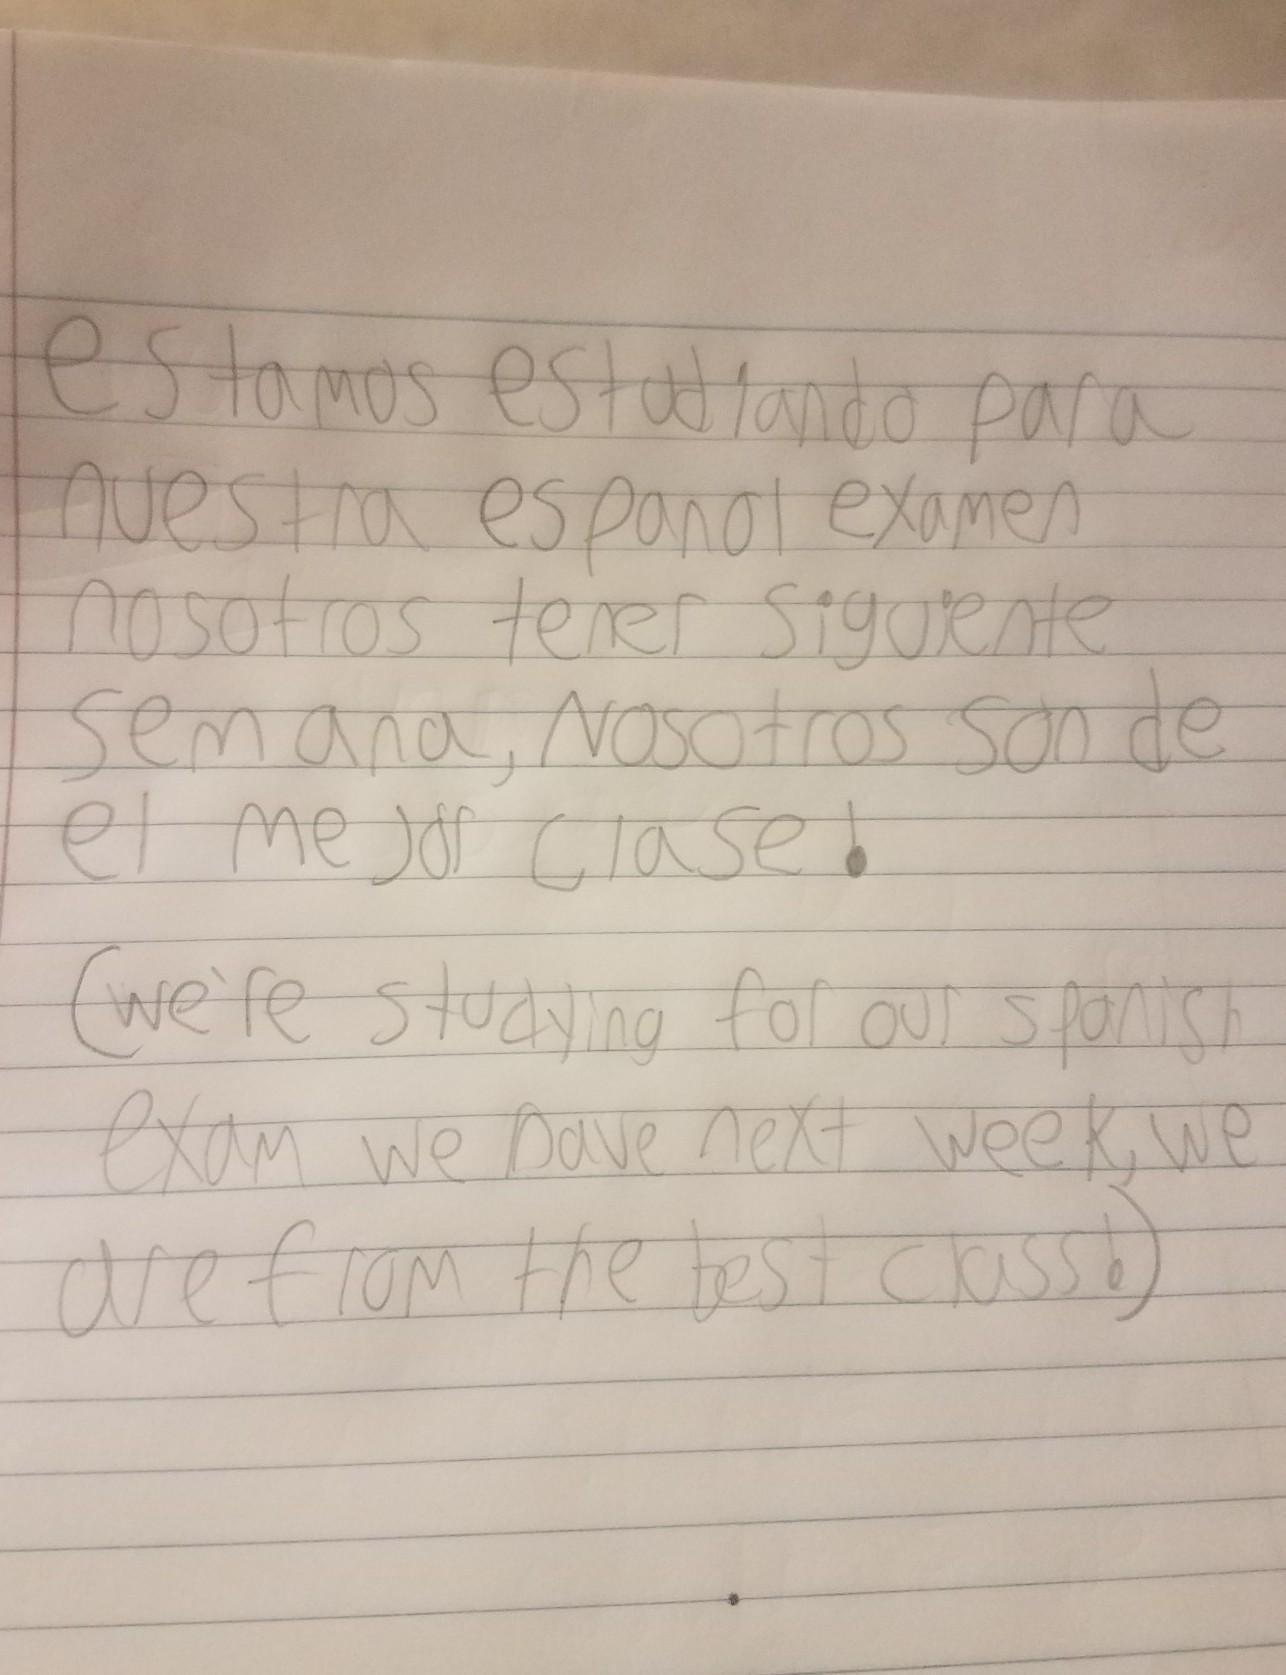 estamos estudiando para
nuestra espanol examen
nosotros tener siguiente
semana, Nosotros son de
el mejor clase!
(we're studying for our spanish
exam we have next week, we
are from the best class!)